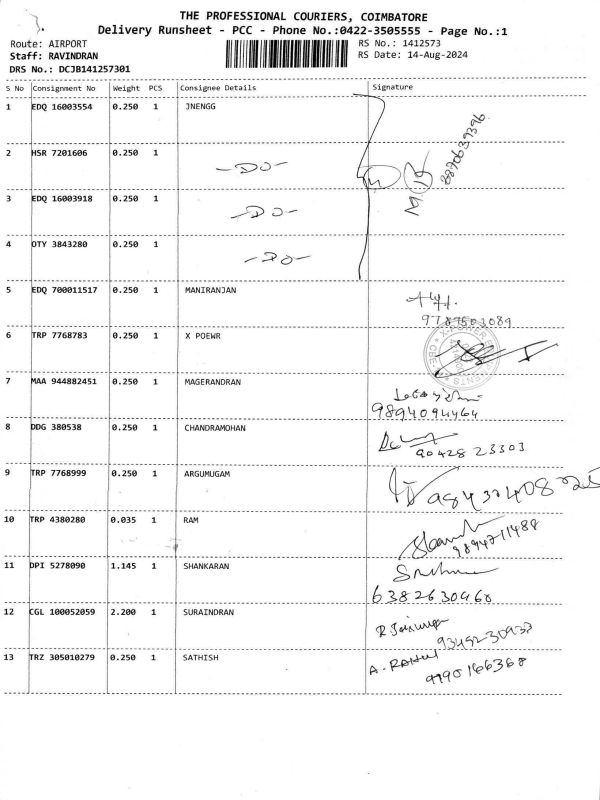 THE PROFESSIONAL COURIERS, COIMBATORE
Delivery Runsheet - PCC - Phone No.:0422-3505555 - Page No.:1
Route: AIRPORT
Staff: RAVINDRAN
DRS No.: DCJB141257301
RS No.: 1412573
RS Date: 14-Aug-2024
S No Consignment No Weight PCS Consignee Details Signature
1 EDQ 16003554 0.250 1 JNENGG
8870639396
2 HSR 7201606 0.250 1 -DO-
3 EDQ 16003918 0.250 1 -DO-
4 OTY 3843280 0.250 1 -DO-
5 EDQ 700011517 0.250 1 MANIRANJAN
9789503089
6 TRP 7768783 0.250 1 X POEWR
7 MAA 944882451 0.250 1 MAGERANDRAN
9894094464
8 DDG 380538 0.250 1 CHANDRAMOHAN
90428 23303
9 TRP 7768999 0.250 1 ARGUMUGAM
10 TRP 4380280 0.035 1 RAM
9894711488
11 DPI 5278090 1.145 1 SHANKARAN
6382630460
12 CGL 100052059 2.200 1 SURAINDRAN
93452-30933
13 TRZ 305010279 0.250 1 SATHISH
A. RAHUL
9790166368